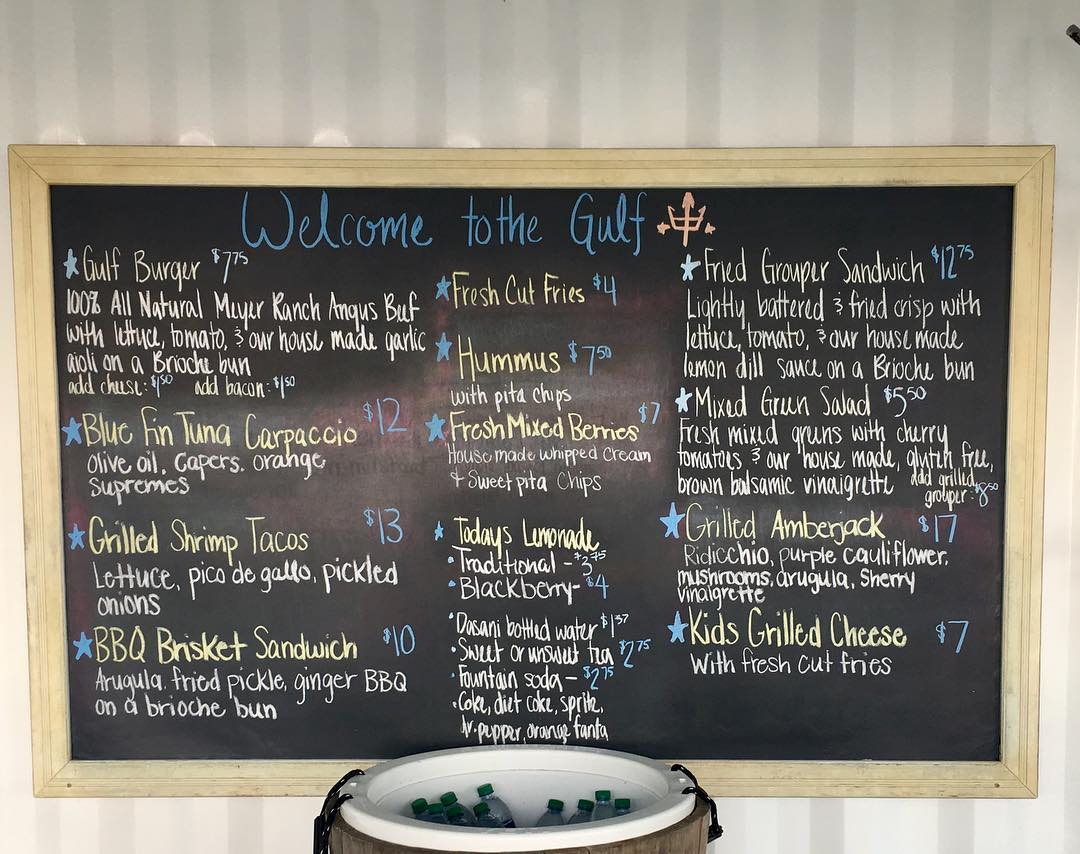 Welcome to the Gulf
Gulf Burger $7.75
100% All Natural Meyer Ranch Angus Beef
with lettuce, tomato, & our house made garlic
aioli on a Brioche bun
add cheese: $1.50 add bacon: $1.50
Blue Fin Tuna Carpaccio $12
Olive oil, Capers. orange
Supremes
Grilled Shrimp Tacos $13
Lettuce, pico de gallo, pickled
onions
BBQ Brisket Sandwich $10
Arugula. fried pickle, ginger BBQ
on a brioche bun
Fresh Cut Fries $4
Hummus $7.50
with pita chips
Fresh Mixed Berries $7
House made whipped cream
& Sweet pita Chips
Todays Lemonade
• Traditional - $3.75
• Blackberry - $4
• Dasani bottled water $1.37
• Sweet or unsweet tea $2.75
• Fountain soda - $2.75
• Coke, diet coke, sprite,
dr. pepper, orange fanta
Fried Grouper Sandwich $12.75
Lightly battered & fried crisp with
lettuce, tomato, & our house made
lemon dill sauce on a Brioche bun
Mixed Green Salad $5.50
Fresh mixed greens with cherry
tomatoes & our house made, gluten free,
brown balsamic vinaigrette add grilled
grouper: $8.50
Grilled Amberjack $17
Ridicchio, purple cauliflower,
mushrooms, arugula, Sherry
vinaigrette
Kids Grilled Cheese $7
With fresh cut fries